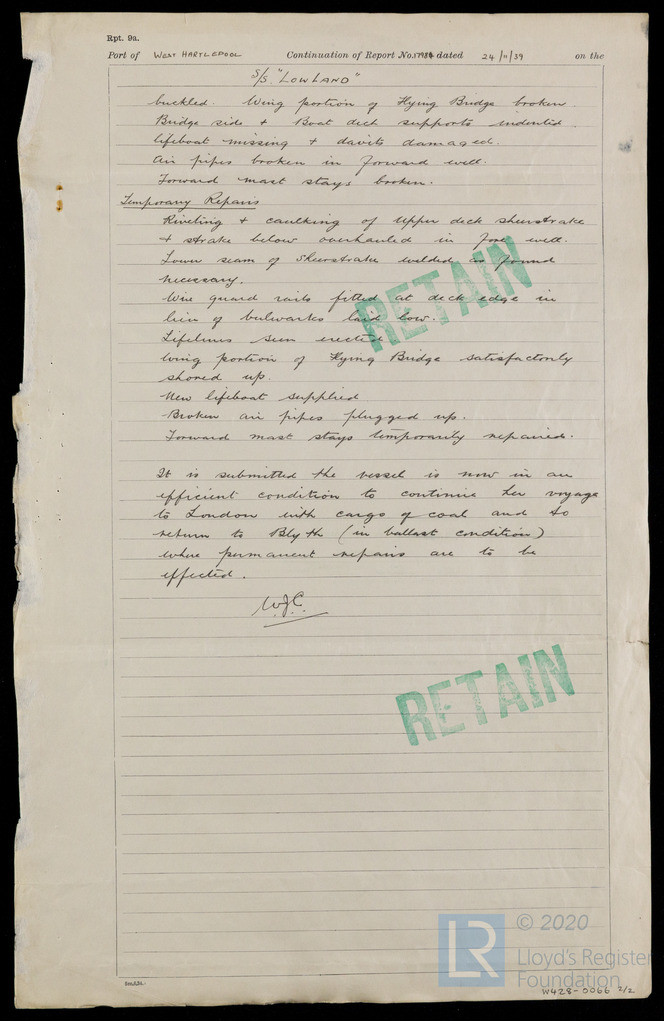 Rpt. 9a.
Port of WEST HARTLEPOOL Continuation of Report No. dated 24/11/39 on the
S/S. "LOWLAND"
buckled. Wing portion of Flying Bridge broken
Bridge side & Boat deck supports indented
lifeboat missing & davits damaged.
Air pipes broken in forward well.
Forward mast stays broken.
Temporary Repairs
Riveting & caulking of upper deck sheerstrake
& strake below overhauled in fore well.
Lower seam of sheerstrake welded as found
necessary.
Wire guard rails fitted at deck edge in
lieu of bulwarks laid low.
Lifelines seen erected
Wing portion of Flying Bridge satisfactorily
shored up.
New lifeboat supplied
Broken air pipes plugged up.
Forward mast stays temporarily repaired.
It is submitted the vessel is now in an
efficient condition to continue her voyage
to London with cargo of coal and to
return to Blyth (in ballast condition)
where permanent repairs are to be
effected.
W.J.C.
RETAIN
RETAIN
© 2020
LR
Lloyd's Register
Foundation
W428-0066 2/2